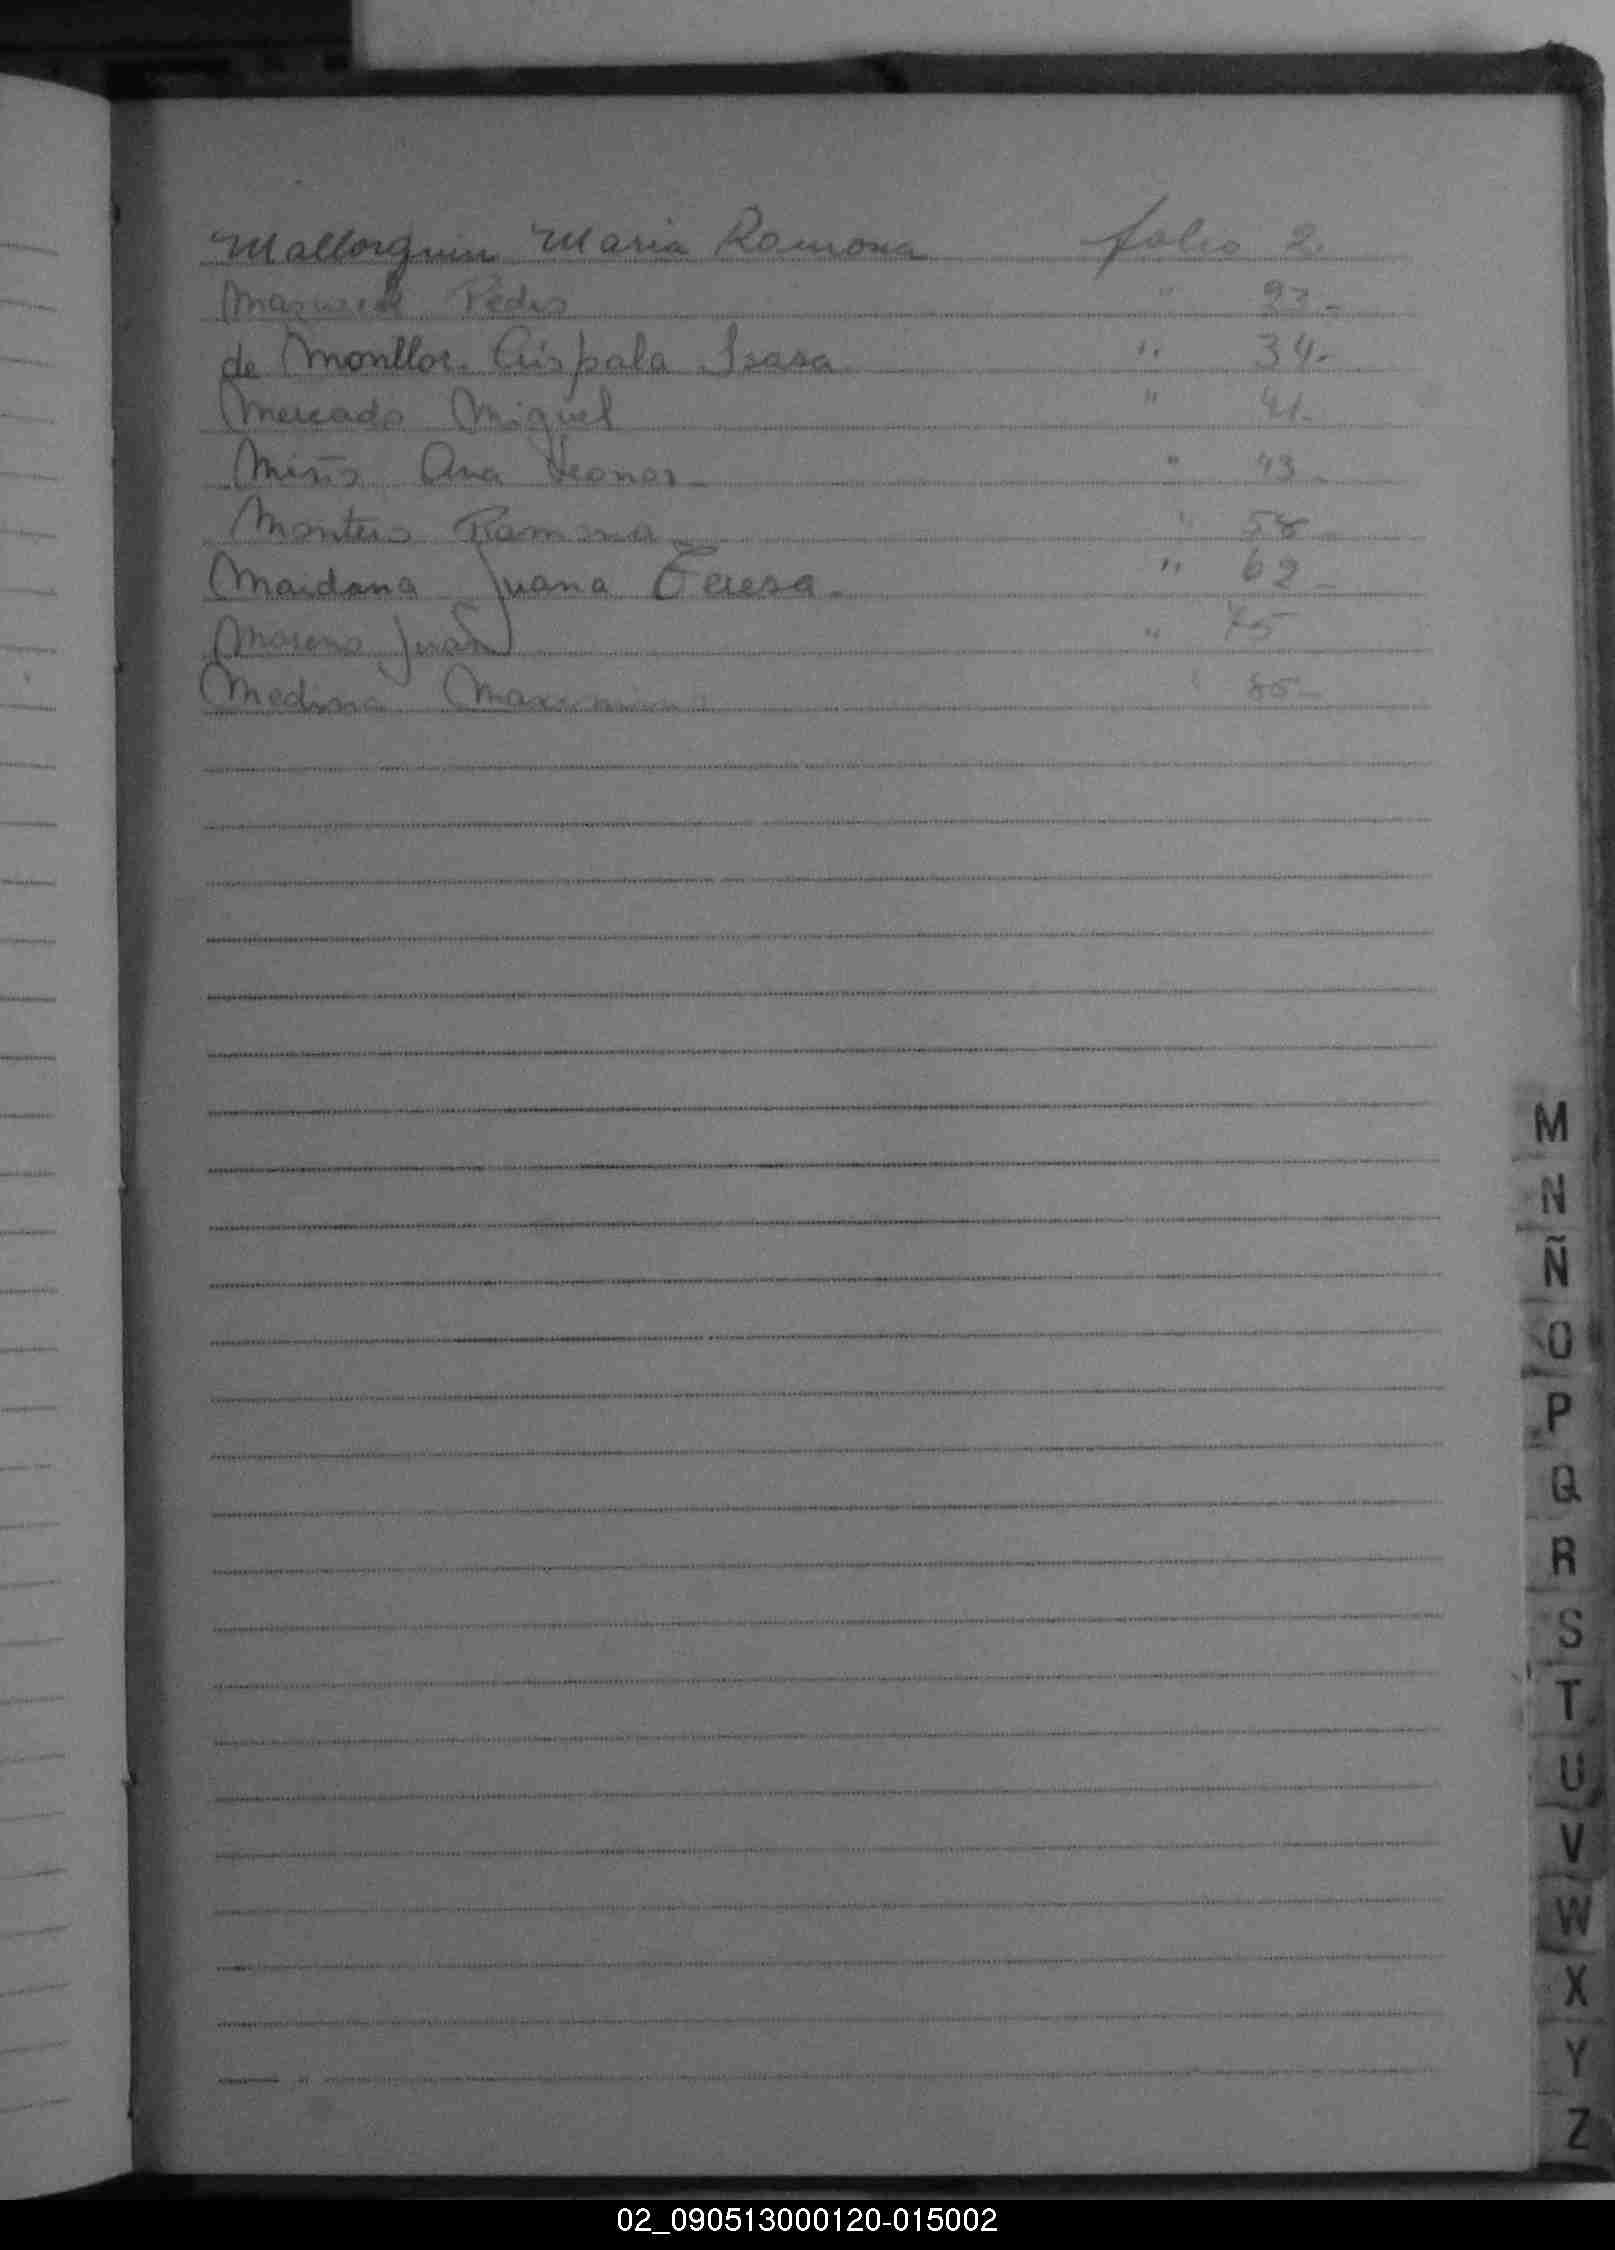 Mallorquin Maria Ramona folio 2.
Mariscal Pedro " 23.-
de Monllor Crispula Isasa " 34.-
Mercado Miguel " 41.-
Miño Ana Leonor.- " 43.-
Montero Ramona " 58.-
Maidana Juana Teresa.- " 62.-
Moreno Juan " 75
Medina Maximino " 85.-
M
N
Ñ
O
P
Q
R
S
T
U
V
W
X
Y
Z
02_090513000120-015002